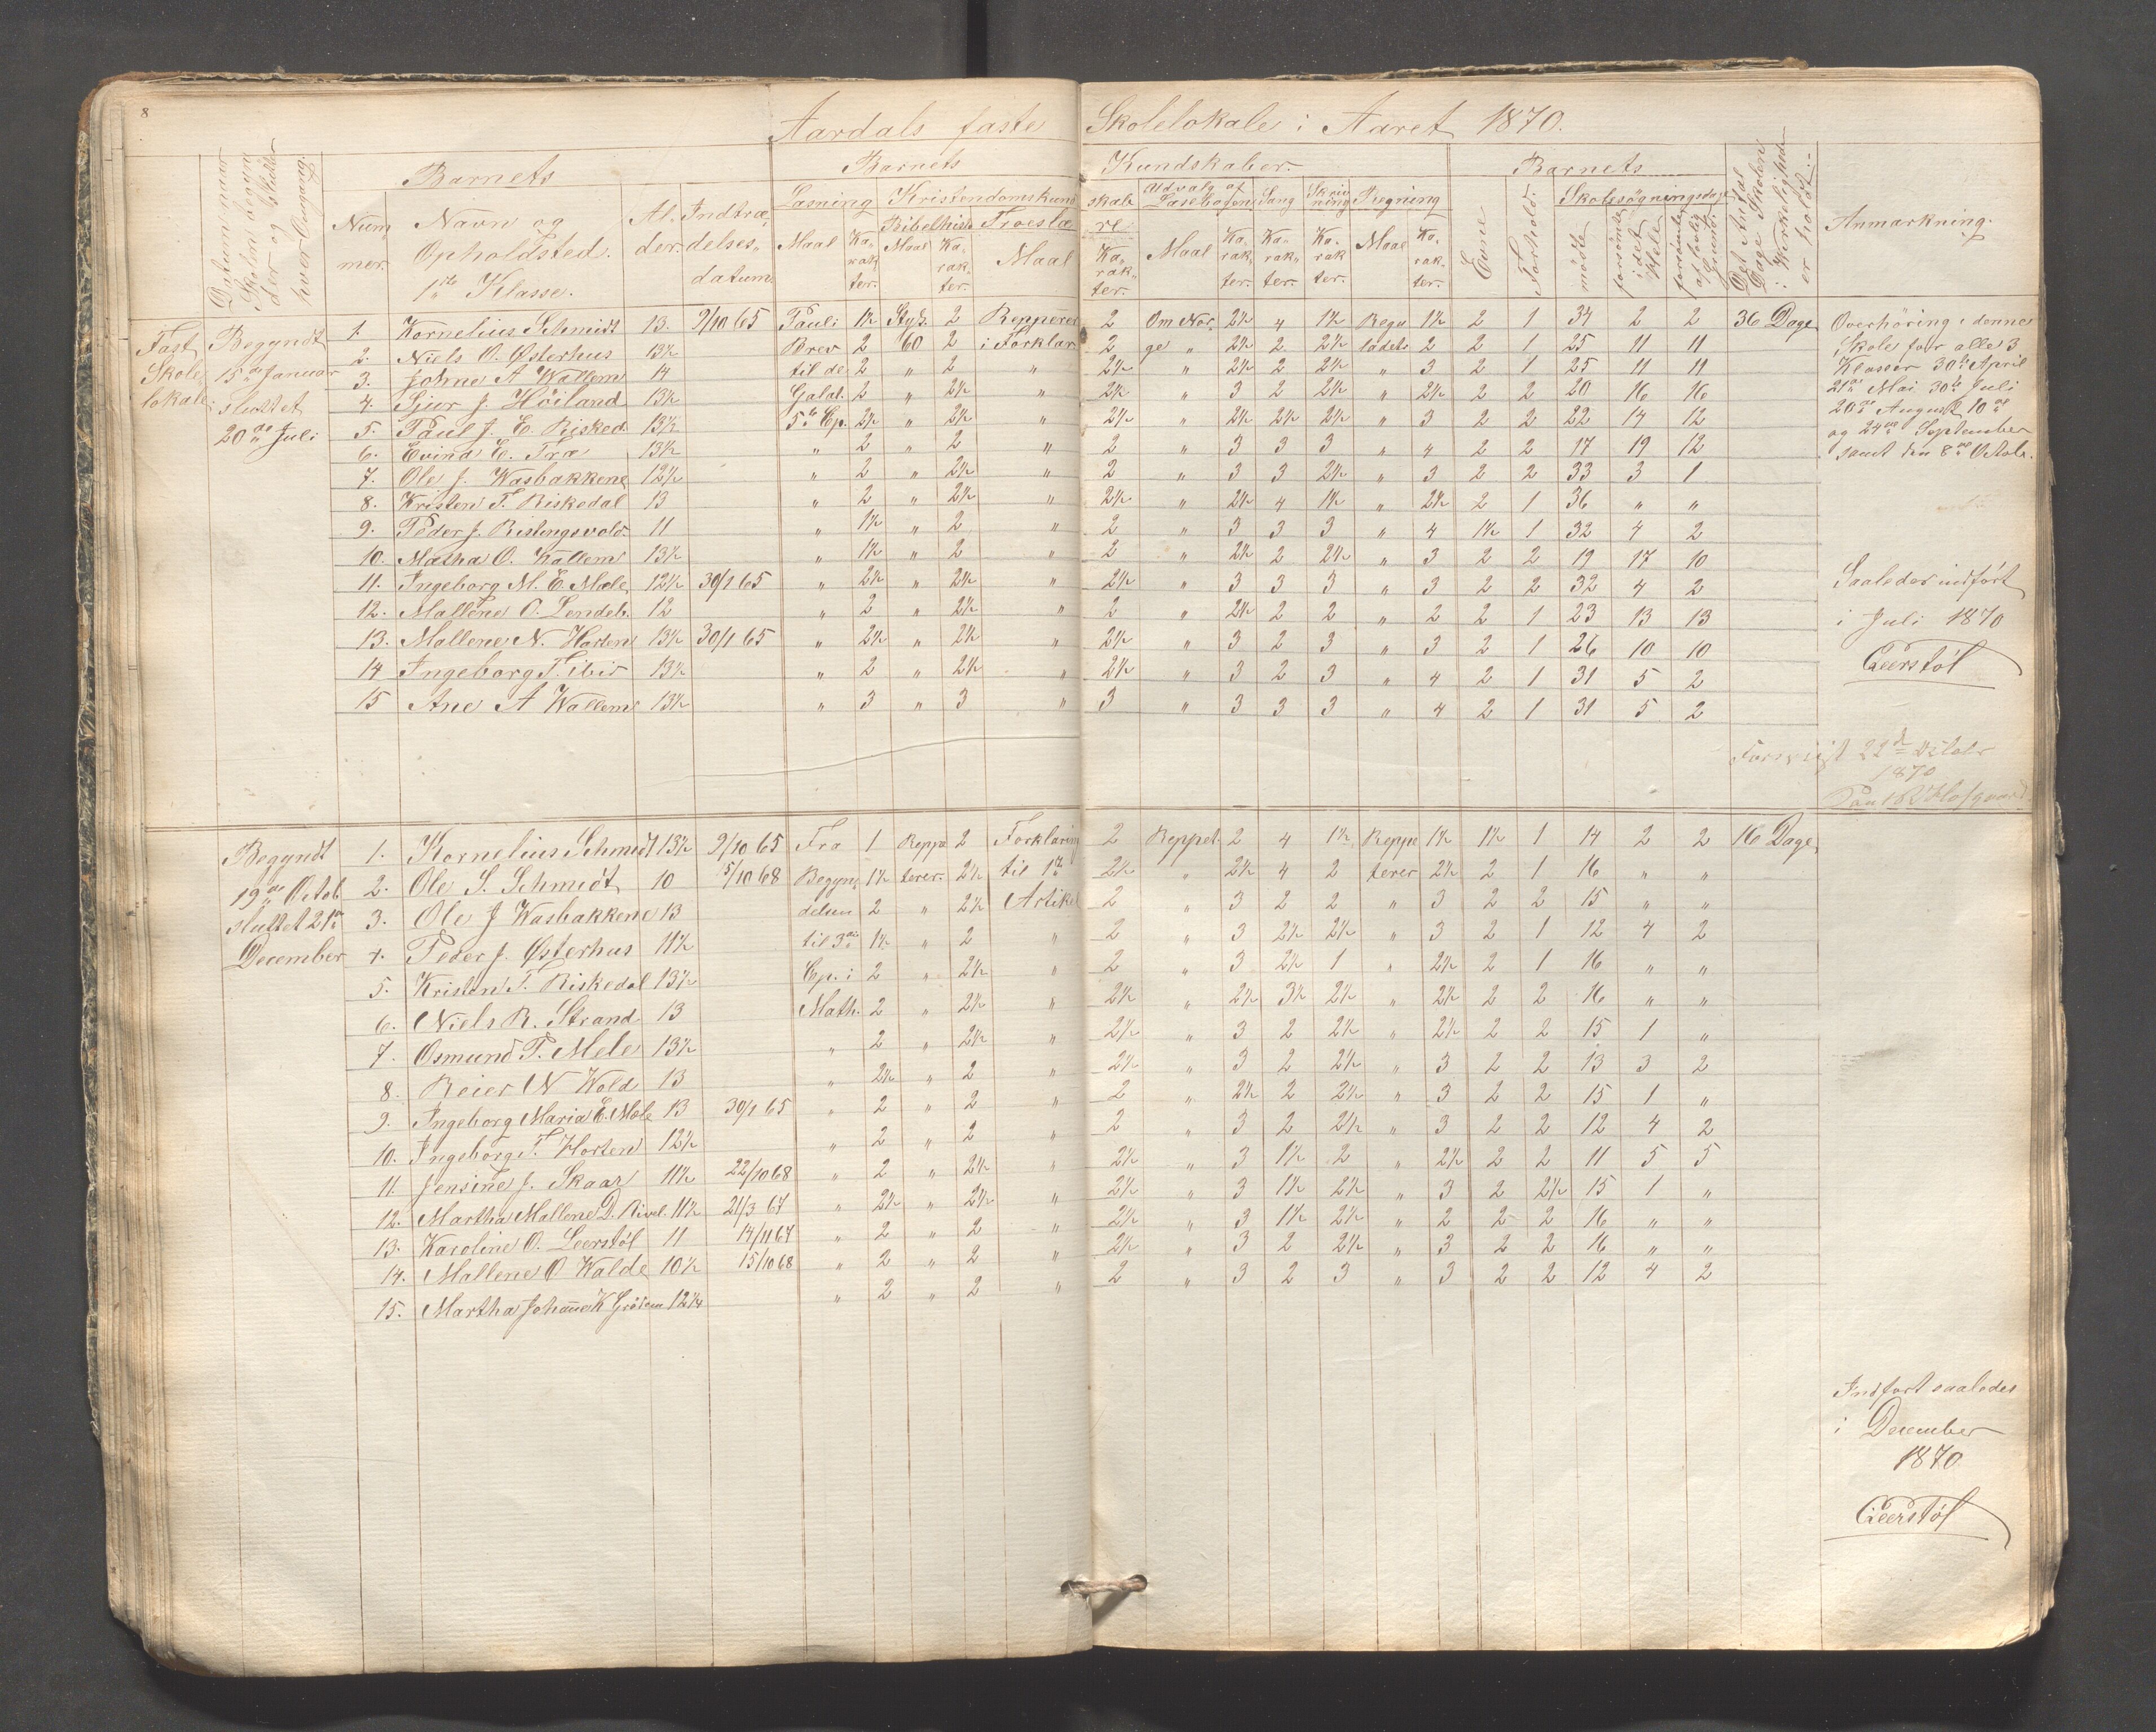 8
Aardals faste Skolelokale i Aaret 1870.
Datum naar Skolen begynder og slutter hver Omgang.
Barnets
Nummer.
Navn og Opholdsted.
1ste Klasse.
Alder.
Indtrædelsesdatum.
Barnets Kundskaber.
Læsning
Maal
Karakter.
Kristendomskundskab
Bibelhist.
Maal
Karakter.
Troeslære
Maal
Karakter.
Udvalg af Læsebogen
Maal
Karakter.
Sang
Karakter.
Skrivning
Karakter.
Regning
Maal
Karakter.
Barnets
Evne
Forhold.
Skolesøgningsdage
mødte
forsømte i det Hele
forsømte af lovlig Grund.
Det Antal Dage Skolen i Virkeligheden er holdt.
Anmærkning.
Fast Skolelokale.
Begyndt 15de Januar sluttet 20de Juli
1. Kornelius Schmidt 13. 9/10 65 Pauli 1½ Styk. 2 Repperer 2 Om Nor, 2½ 4 1½ Regu 1½ 2 1 34 2 2 36 Dage
2. Niels O. Østerhus 13½ Brev 2 60 2 i Forklar. 2 ge „ 2½ 2 2½ ladetr 2 2 1 25 11 11
3. Johne A Wallem 14 til de 2 „ 2 „ 2½ „ 2½ 2 2½ „ 3 2 1 25 11 11
4. Sjur J. Høiland 13½ Galat. 2 „ 2½ „ 2½ „ 3 2 2½ „ 2½ 2 2 20 16 16
5. Paul J. E. Risked. 13½ 5te Ep. 2½ „ 2½ „ 2½ „ 2½ 2½ 2½ „ 3 2 2 22 14 12
6. Evind E. Træ 13½ „ 2 „ 2 „ 2 „ 3 3 3 „ 4 2 2 17 19 12
7. Ole J. Wasbakkene 12½ „ 2 „ 2½ „ 2 „ 3 3 2½ „ 3 2 2 33 3 1
8. Kristen T. Riskedal 13 „ 2 „ 2½ „ 2½ „ 2½ 4 1½ „ 2½ 2 1 36 „ „
9. Peder J. Ristingsvold. 11 „ 1½ „ 2 „ 2 „ 3 3 3 „ 4 1½ 1 32 4 2
10. Matha O. Kallem 13½ „ 1½ „ 2 „ 2 „ 2½ 2 2½ „ 3 2 2 19 17 10
11. Ingeborg M. E. Mæle 12½ 30/1 65 „ 2½ „ 2½ „ 2½ „ 3 3 3 „ 3 2 2 32 4 2
12. Mallene O. Lendeb. 12 „ 2 „ 2½ „ 2 „ 2½ 2 2 „ 2 2 1 23 13 13
13. Mallene N. Horten 13½ 30/1 65 „ 2½ „ 2½ „ 2½ „ 3 2 3 „ 3 2 1 26 10 10
14 Ingeborg T. ibid 13½ „ 2 „ 2½ „ 2½ „ 3 2 3 „ 4 2 1 31 5 2
15 Ane A Wallem 13½ „ 3 „ 3 „ 3 „ 3 3 3 „ 4 2 1 31 5 2
Overhöring i denne
Skole for alle 3
Klasser 30te April
21de Mai 30te Juli
20de August 10de
og 24de September
samt den 8de Octobr.
Saaledes indført
i Juli 1870
Geerstøl
22de October
1870
Begyndt 19de Octob. sluttet 21de December
1. Kornelius Schmidt 13½ 9/10 65 Fra 1 Reppe 2 Forklaring 2 Reppet. 2 4 1½ Reppe 1½ 1½ 1 14 2 2 16 Dage
2. Ole S. Schmidt 10 5/10 68 Begyn 1½ terer. 2½ til 1ste 2½ „ 2½ 4 2 terer 2½ 2 1 16 „ „
3. Ole J Wasbakkene 13 delsen 2 „ 2½ Artikel 2 „ 3 2 2 „ 3 2 2 15 „ „
4. Peder J. Østerhus 11½ til 3die 1½ „ 2 „ 2 „ 3 2½ 2½ „ 3 2 1 12 4 2
5. Kristen T. Riskedal 13½ Ep. i 2 „ 2½ „ 2 „ 3 2½ 1 „ 2½ 2 1 16 „ „
6. Niels R. Strand 13 Math. 2 „ 2½ „ 2½ „ 2½ 3½ 2½ „ 2½ 2 2 16 „ „
7. Osmund T. Mele 13½ „ 2 „ 2½ „ 2½ „ 3 2 2½ „ 2½ 2 2 15 1 „
8. Reier N Wold 13 „ 2½ „ 2 „ 2½ „ 3 2 2½ „ 3 2 2 13 3 2
9. Ingeborg Maria E. Mæle 13 30/1 65 „ 2 „ 2 „ 2 „ 2½ 2 2½ „ 3 2 2 15 1 „
10. Ingeborg T. Horten 12½ „ 2 „ 2 „ 2 „ 3 2 2½ „ 3 2 2 12 4 2
11. Jensine J. Skaar 11½ 22/10 68 „ 2 „ 2½ „ 2½ „ 3 1½ 2 „ 2½ 2 2 11 5 5
12. Martha Mallene D. Rivel. 11½ 21/3 67 „ 2½ „ 2½ „ 2½ „ 3 1½ 2½ „ 3 2 2½ 15 1 „
13. Karoline O. Leerstøl 11 14/11 67 „ 2 „ 2 „ 2½ „ 3 1½ 2½ „ 2 2 2 16 „ „
14. Mallene O Walde 10½ 15/10 68 „ 2 „ 2 „ 2½ „ 3 2 2½ „ 3 2 2 16 „ „
15. Martha Johanne K Grødem 12¼ „ 2 „ 2 „ 2 „ 3 2 3 „ 3 2 2 12 4 2
Indført saaledes
i December
1870
Geerstøl